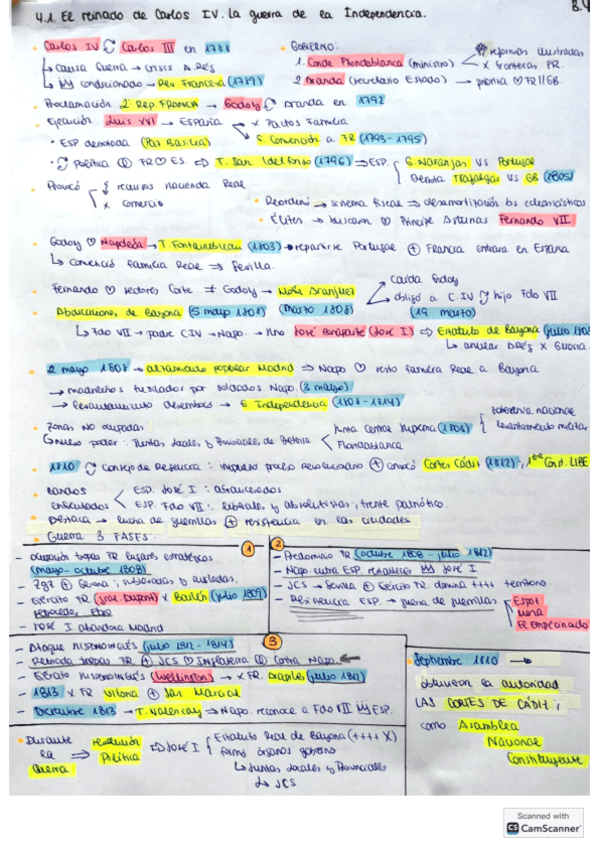 4.1. El reinado de Carlos IV. La guerra de la Independencia.
B.4
Carlos IV Carlos III en 1788
Causa Guerra → crisis A.R's
condicionado → Rev. Francesa (1789)
GOBIERNO:
1. Conde Floridablanca (ministro)
reformas ilustradas
x fronteras FR.
2. Aranda (secretario Estado) → FR || GB.
Proclamación 2ª Rep. FRANCIA → Godoy Aranda en 1792
Ejecución Luis XVI → ESPAÑA
x Pactos Familia
G. Convención a FR (1793-1795)
ESP derrotada (Paz Basilea)
Política FR ♡ ES. ⇨ T. San Ildefonso (1796) ⇒ ESP.
G. Naranjas VS Portugal
Derrota Trafalgar VS GB (1805)
Provocó
recursos Hacienda Real
x comercio
Reordenó → sistema fiscal ⇒ desamortización bs eclesiásticos
Élites → buscaron ♡ Príncipe Asturias Fernando VII.
Godoy ♡ Napoleón → T. Fontainebleau (1803) → repartirse Portugal ⊕ Francia entrara en España
Familia Real ⇒ Sevilla.
Fernando ♡ sectores Corte ≠ Godoy → Motín Aranjuez
(marzo 1808)
Caída Godoy
obligó a C.IV hijo Fdo VII
(19 marzo)
Abdicaciones de Bayona (5 mayo 1808)
Fdo VII → padre C.IV → Napo. → hno José Bonaparte (José I) ⇨ Estatuto de Bayona (julio 1808)
anular DRE's x Guerra.
2 mayo 1808 → altercado popular Madrid ⇒ Napo ♡ resto familia Real a Bayona
→ madrileños fusilados por soldados Napo. (3 mayo)
→ levantamiento → G Independencia (1808-1814)
Zonas NO ocupadas
poder: Juntas Locales y Provinciales de Defensa
Junta Central Suprema (1808)
Floridablanca
defensiva nacional
levantamiento militar
1810 Consejo de Regencia: impulsó proceso revolucionario ⊕ convocó Cortes Cádiz (1812), 1ª Const. LIBE
Bandos
enfrentados
ESP. José I: afrancesados
ESP. Fdo VII: liberales y absolutistas, frente patriótico.
Destaca → lucha de guerrillas ⊕ resistencia en las ciudades
Guerra 3 FASES:
1
- ocupación tropas FR lugares estratégicos
(mayo - octubre 1808)
- Zgz ⊕ Gerona: asediadas y aisladas.
- Ejército FR (gral. Dupont) x Bailén (julio 1808)
- JOSÉ I abandona Madrid
2
- Predominio FR (octubre 1808 - julio 1812)
- Napo entra ESP. restablecer José I
- JCS → Sevilla ⊕ Ejército FR domina ++++ territorio.
- Resistencia ESP. → guerra de guerrillas
Espoz
Mina
El Empecinado
3
- Ataque hispanoinglés (julio 1812 - 1814)
- Retirada tropas FR ⊕ JCS ♡ Inglaterra contra Napo.
- Ejército hispanoinglés (Wellington) → x FR. Arapiles (julio 1812)
- 1813 x FR Vitoria ⊕ San Marcial
- Diciembre 1813 → T. Valençay ⇒ Napo. reconoce a Fdo VII ESP.
Septiembre 1810 →
obtuvieron la autoridad
LAS CORTES DE CÁDIZ,
como Asamblea
Nacional
Constituyente
Durante
la
Guerra
⇒ revolución
Política
⇨ José I
Estatuto Real de Bayona (++++ X)
formó órganos gobierno
Juntas Locales y Provinciales
JCS
Scanned with
CS CamScanner